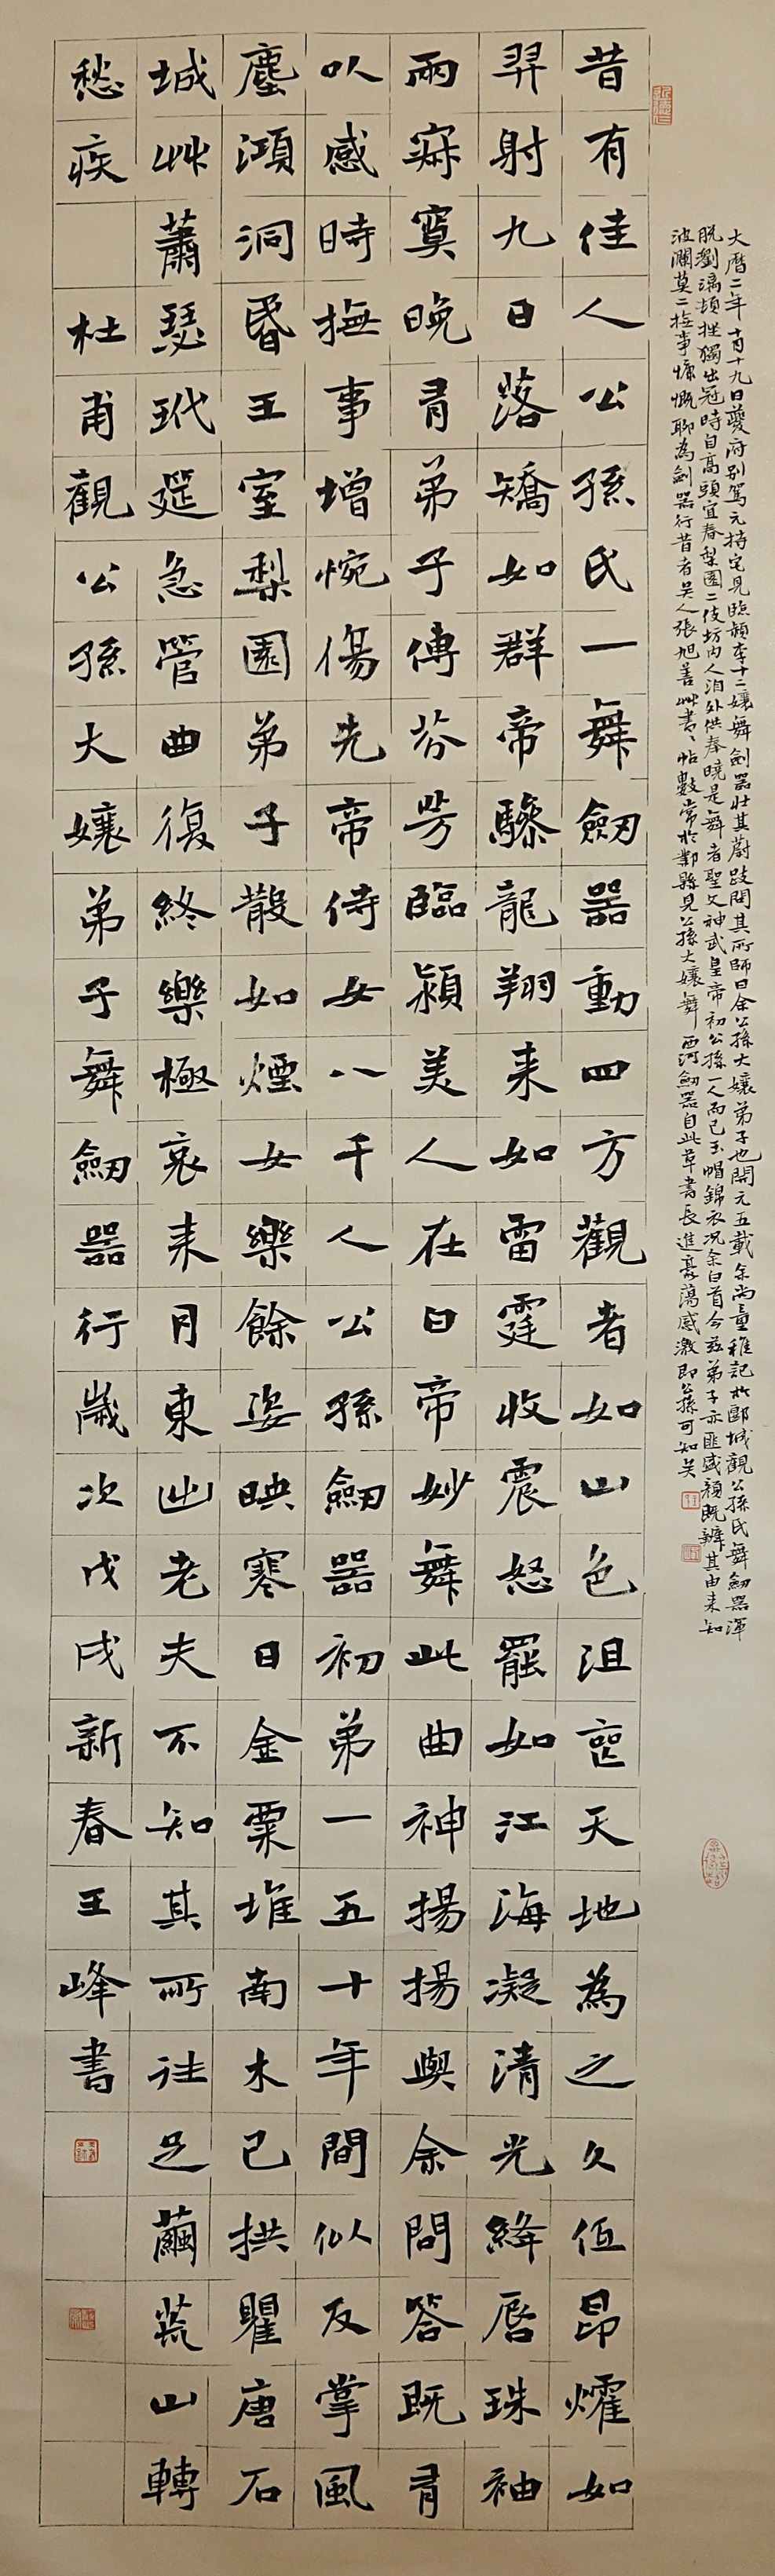 大曆二年十月十九日夔府別駕元持宅見臨潁李十二孃舞劍器壯其蔚跂問其所師曰余公孫大孃弟子也開元五載余尚童稚記於郾城觀公孫氏舞劒器渾
脫瀏漓頓挫獨出冠時自高頭宜春梨園二伎坊內人洎外供奉曉是舞者聖文神武皇帝初公孫一人而已玉帽錦衣況余白首今茲弟子亦匪盛顏既辨其由来知
波瀾莫二撫事慷慨聊為劍器行昔者吳人張旭善艸書〻帖數常於鄴縣見公孫大孃舞西河劒器自此草書長進豪蕩感激即公孫可知矣
昔有佳人公孫氏一舞劒器動四方觀者如山色沮喪天地為之久低昂燿如
羿射九日落矯如群帝驂龍翔来如雷霆收震怒罷如江海凝清光絳唇珠袖
兩寂寞晚有弟子傳芬芳臨潁美人在白帝妙舞此曲神揚揚與余問答既有
以感時撫事增惋傷先帝侍女八千人公孫劒器初弟一五十年間似反掌風
塵澒洞昏王室梨園弟子散如煙女樂餘姿映寒日金粟堆南木已拱瞿唐石
城艸蕭瑟玳筵急管曲復終樂極哀来月東出老夫不知其所往足繭荒山轉
愁疾 杜甫觀公孫大孃弟子舞劒器行歲次戊戌新春王峰書